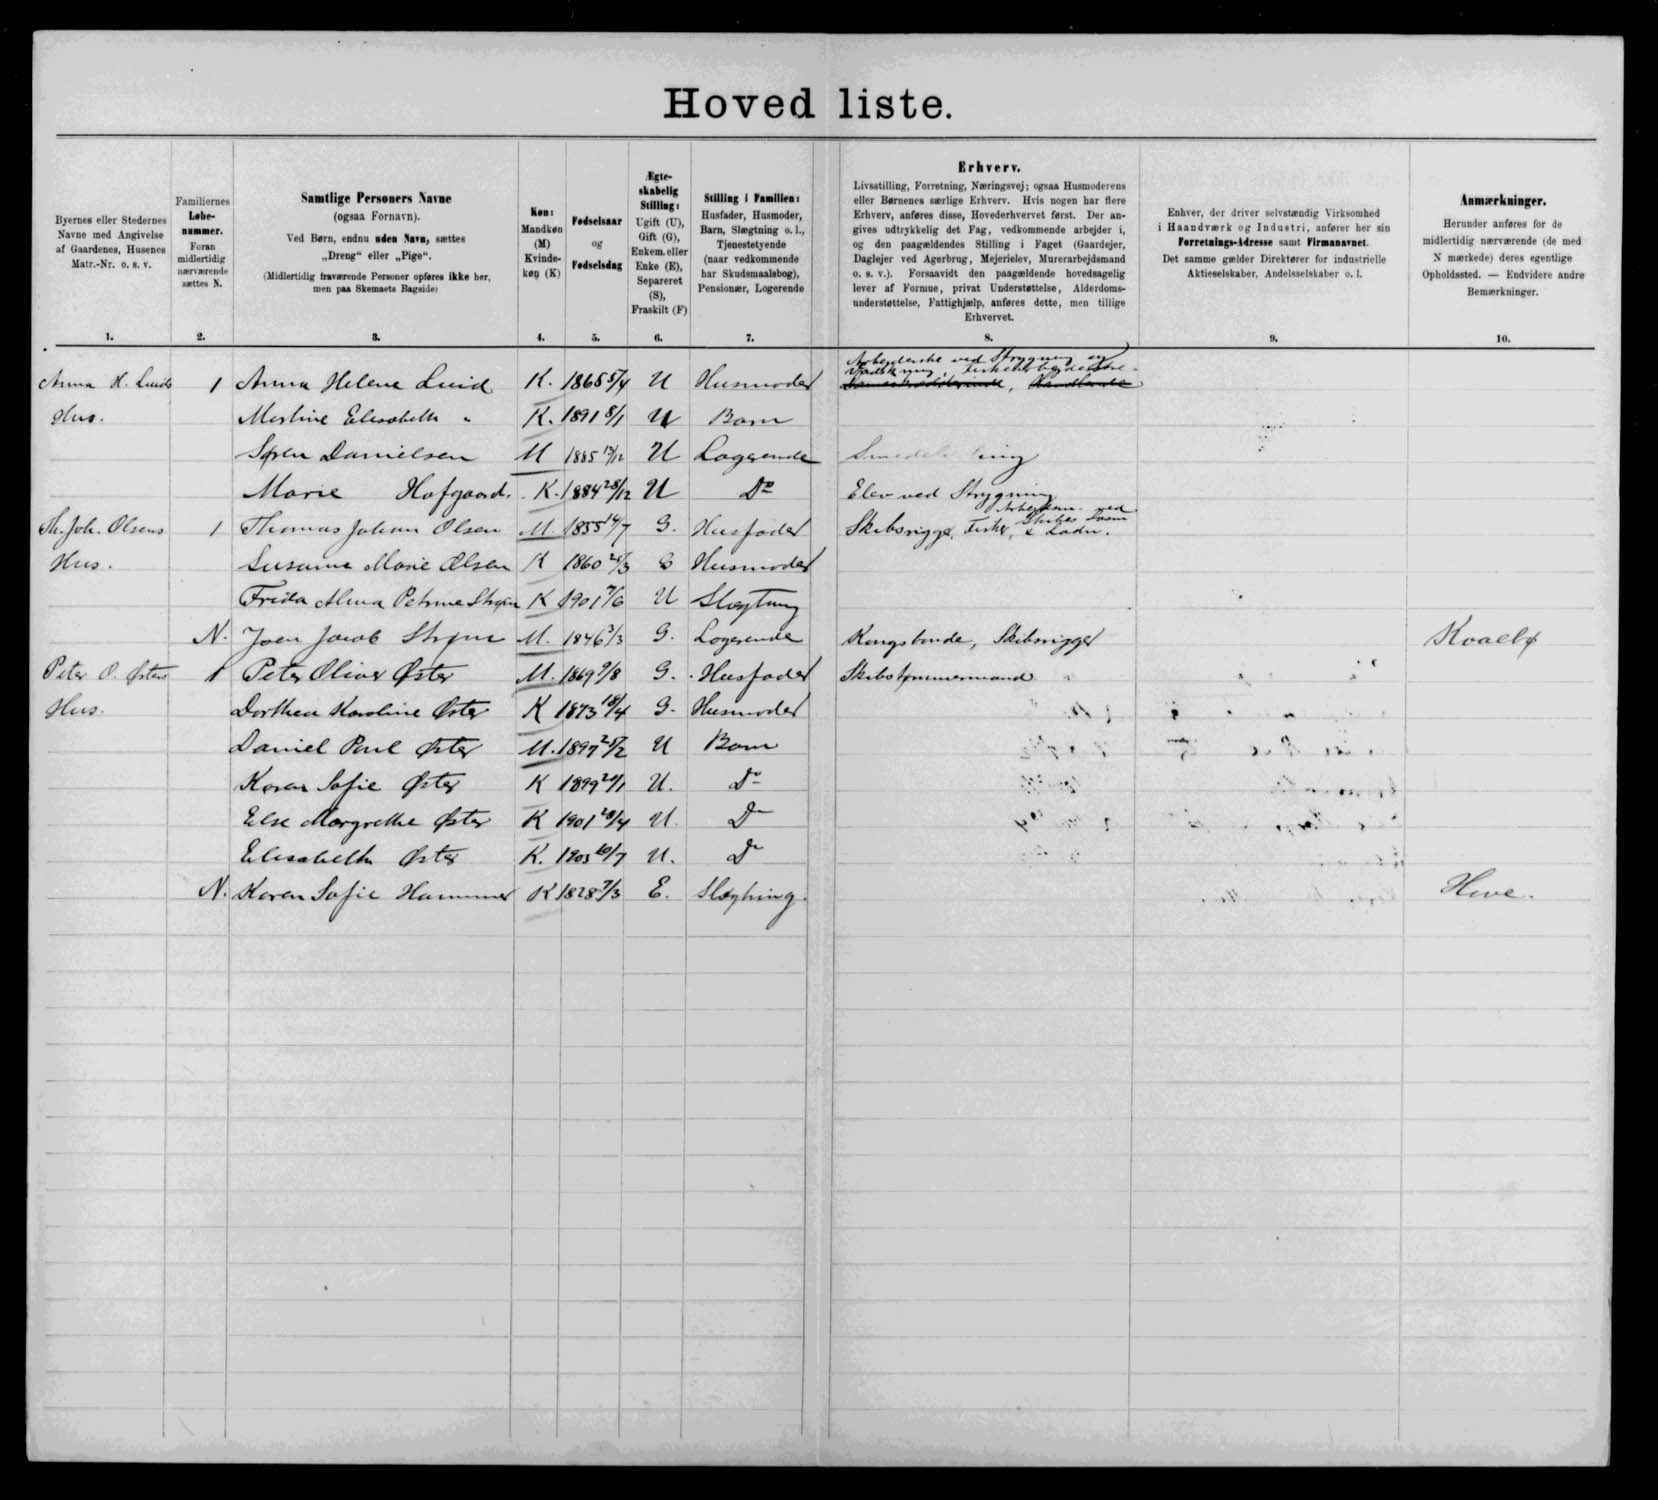 Hoved liste.
Byernes eller Stedernes
Navne med Angivelse
af Gaardenes, Husenes
Matr.-Nr. o. s. v.
Familiernes
Løbe-
nummer.
Foran
midlertidig
nærværende
sættes N.
Samtlige Personers Navne
(ogsaa Fornavn).
Ved Børn, endnu uden Navn, sættes
„Dreng“ eller „Pige“.
(Midlertidig fraværende Personer opføres ikke her,
men paa Skemaets Bagside)
Køn:
Mandkøn
(M)
Kvinde-
køn (K)
Fødselsaar
og
Fødselsdag
Ægte-
skabelig
Stilling:
Ugift (U),
Gift (G),
Enkem. eller
Enke (E),
Separeret
(S),
Fraskilt (F)
Stilling i Familien:
Husfader, Husmoder,
Barn, Slægtning o. l.,
Tjenestetyende
(naar vedkommende
har Skudsmaalsbog),
Pensionær, Logerende
Erhverv.
Livsstilling, Forretning, Næringsvej; ogsaa Husmoderens
eller Børnenes særlige Erhverv. Hvis nogen har flere
Erhverv, anføres disse, Hovederhvervet først. Der an-
gives udtrykkelig det Fag, vedkommende arbejder i,
og den paagældendes Stilling i Faget (Gaardejer,
Daglejer ved Agerbrug, Mejerielev, Murerarbejdsmand
o. s. v.). Forsaavidt den paagældende hovedsagelig
lever af Formue, privat Understøttelse, Alderdoms-
understøttelse, Fattighjælp, anføres dette, men tillige
Erhvervet.
Enhver, der driver selvstændig Virksomhed
i Haandværk og Industri, anfører her sin
Forretnings-Adresse samt Firmanavnet.
Det samme gælder Direktører for industrielle
Aktieselskaber, Andelsselskaber o. l.
Anmærkninger.
Herunder anføres for de
midlertidig nærværende (de med
N mærkede) deres egentlige
Opholdssted. — Endvidere andre
Bemærkninger.
1. 2. 3. 4. 5. 6. 7. 8. 9. 10.
Arbejderske ved Strygning og
Anna H. Luids 1 Anna Helene Luid K. 1865 5/4 U Husmoder
Hus. Mortine Elisabeth " K. 1891 8/1 U Barn
Søren Danielsen M 1885 13/12 U Logerende
Marie Hofgaard. K. 1884 28/12 U Do Elev ved Strygning
Th. Joh. Olsens 1 Thomas Johan Olsen M. 1855 14/7 G. Husfader Skibsrigger, Fisker,
Hus. Susanne Marie Olsen K 1860 25/3 G Husmoder
Frida Alma Petrine Strøm K 1901 7/6 U Slægtning
N. Joen Jacob Strøm M. 1846 3/3 G. Logerende Kongsbonde, Skibsrigger Kvalbø
Peter O. Østers 1 Peter Oliver Øster M. 1869 9/8 G. Husfader Skibstømmermand
Hus. Dorthea Karoline Øster K 1873 18/4 G. Husmoder
Daniel Paul Øster M. 1897 25/2 U Barn
Karen Sofie Øster K 1899 20/1 U. Do
Else Margrethe Øster K 1901 28/4 U. Do
Elisabeth Øster K. 1903 10/7 U. Do
N. Karen Sofie Hammer K 1828 7/3 E. Slægtning. Hove.